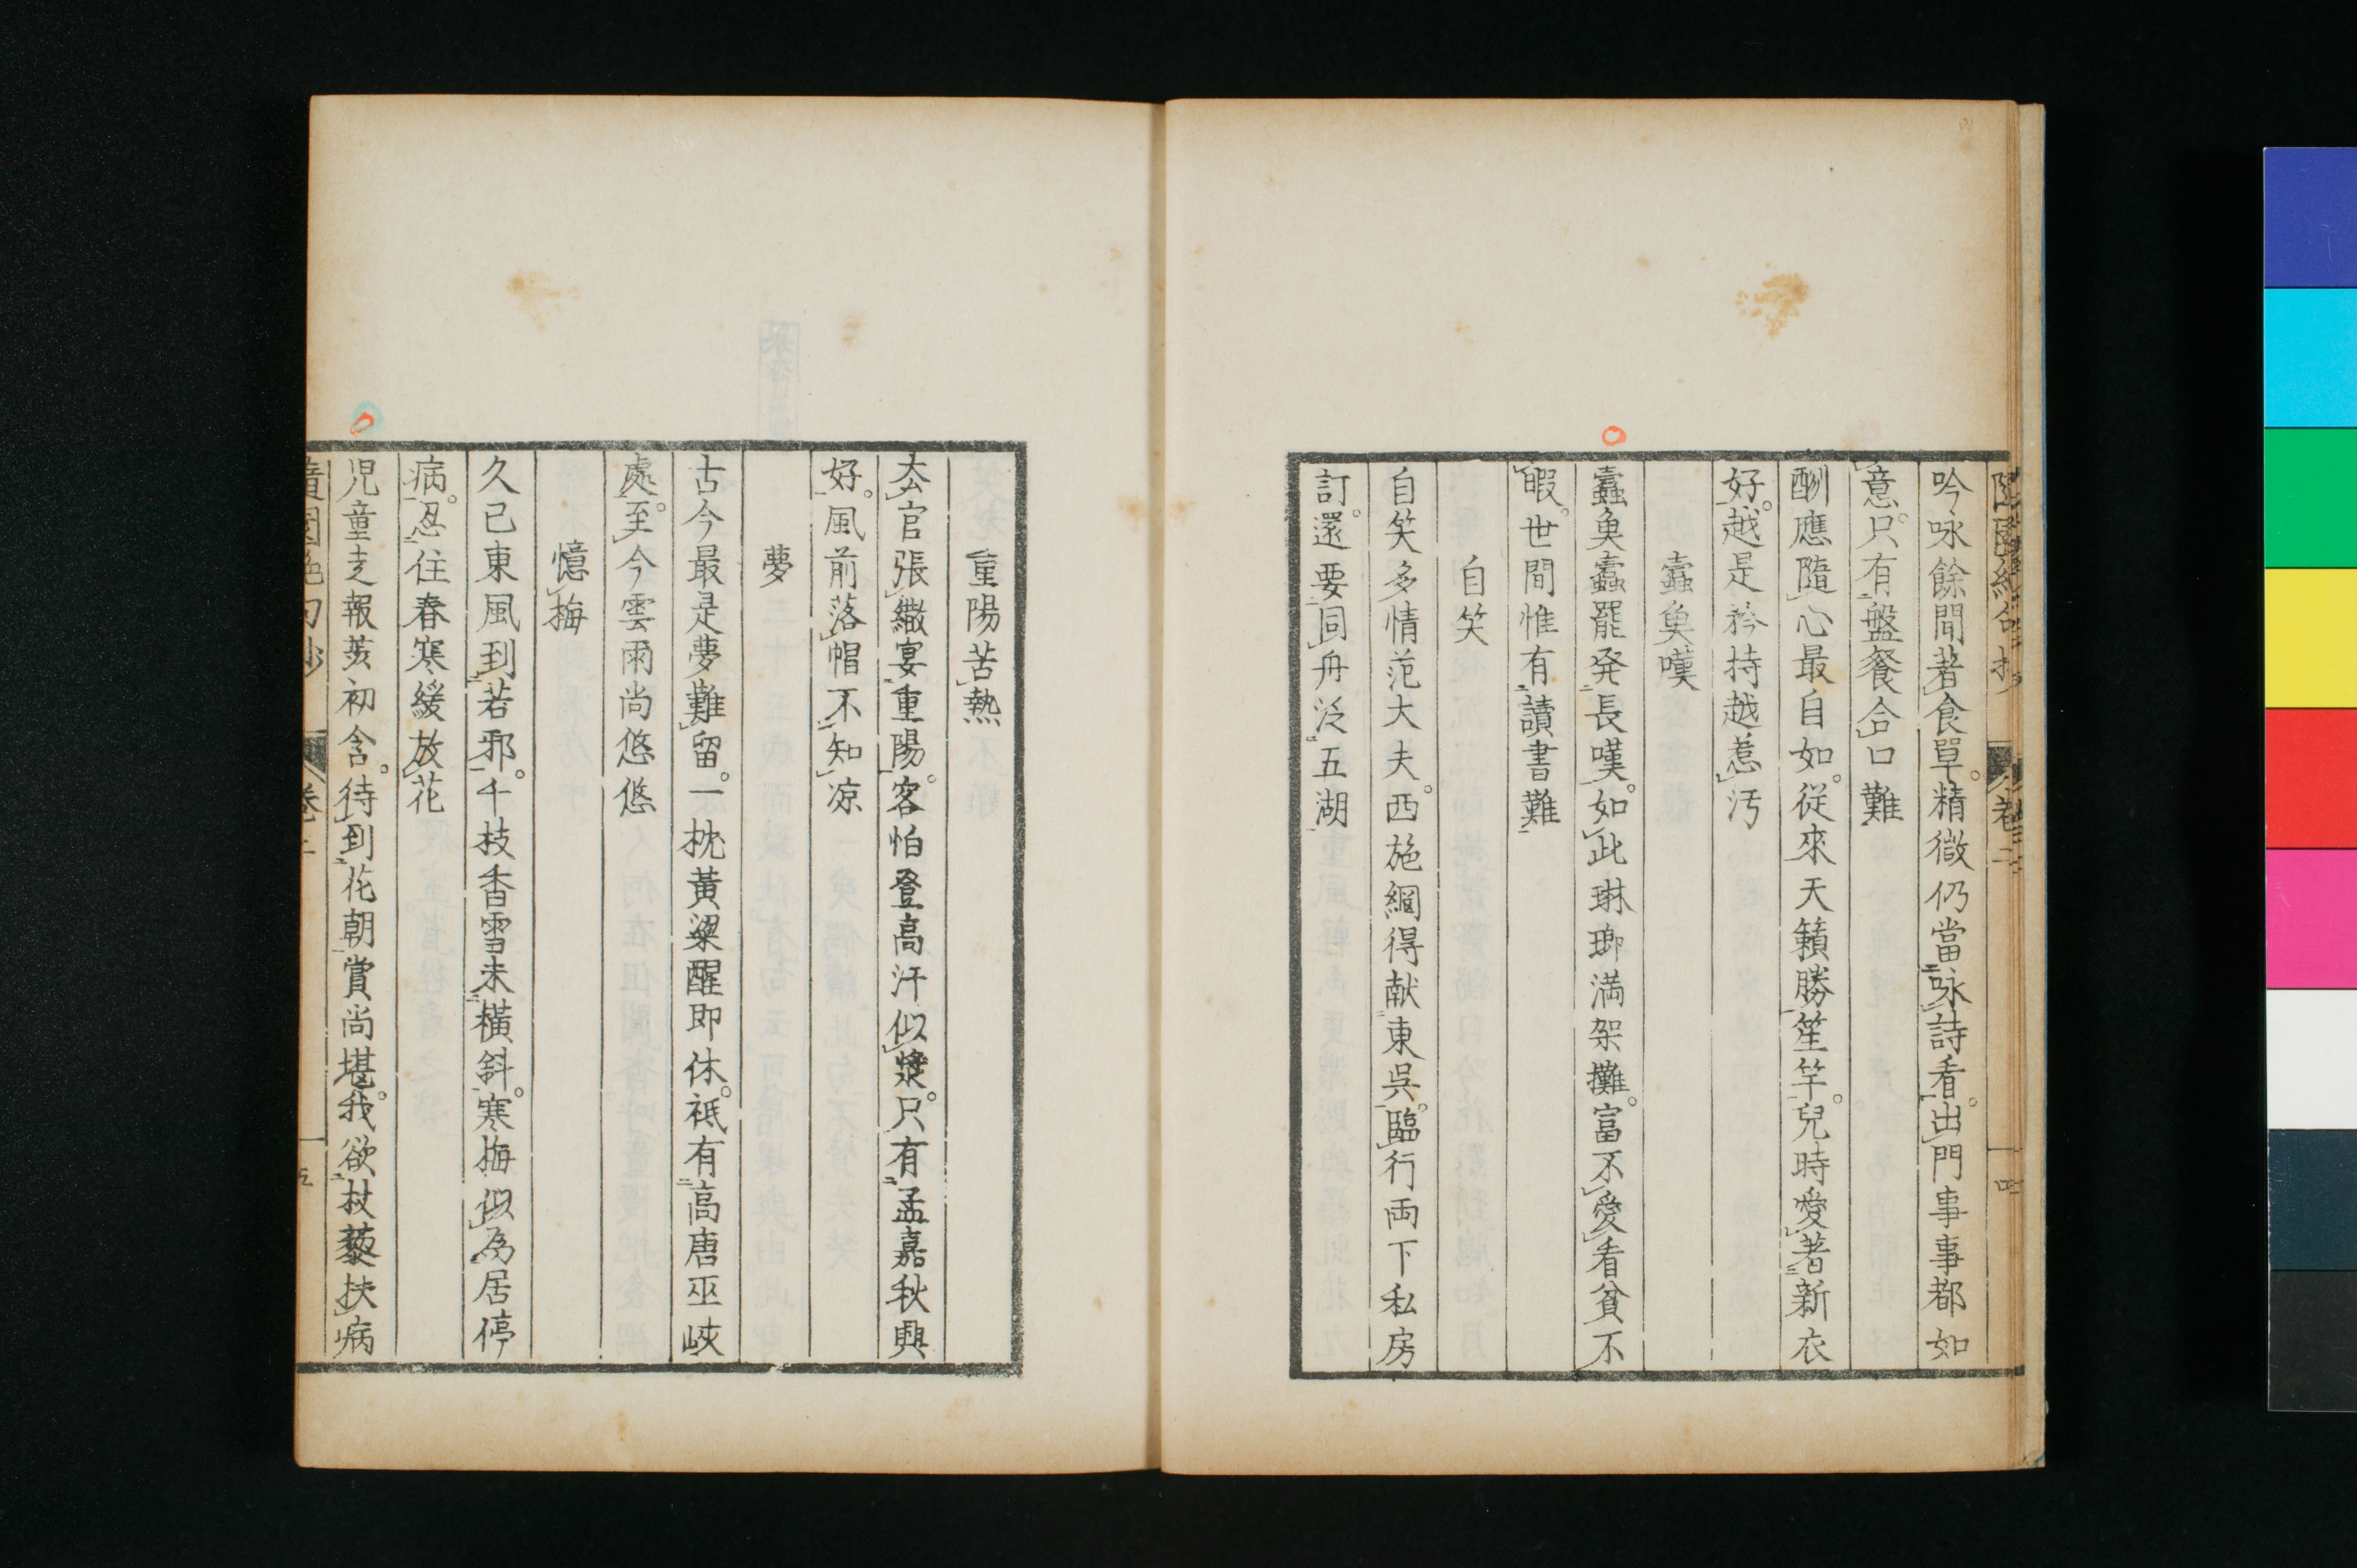 隨園絶句抄 卷二 四
吟咏餘間著食單。精微仍當咏詩看。出門事事都如
意。只有盤餐合口難
酬應隨心最自如。從來天籟勝笙竽。兒時愛著新衣
好。越是矜持越惹汚
蠹魚嘆
蠹魚蠹罷発長嘆。如此琳瑯満架攤。富不愛看貧不
暇。世間惟有讀書難
自笑
自笑多情范大夫。西施網得献東呉。臨行両下私房
訂。還要同舟泛五湖
重陽苦熱
太官張繖宴重陽。客怕登高汗似漿。只有孟嘉秋興
好。風前落帽不知凉
夢
古今最是夢難留。一枕黃粱醒即休。祗有高唐巫峽
處。至今雲雨尚悠悠
憶梅
久已東風到若邪。千枝香雪未橫斜。寒梅似為居停
病。忍住春寒緩放花
児童走報蕚初含。待到花朝賞尚堪。我欲杖藜扶病
隨園絶句抄 卷二 五